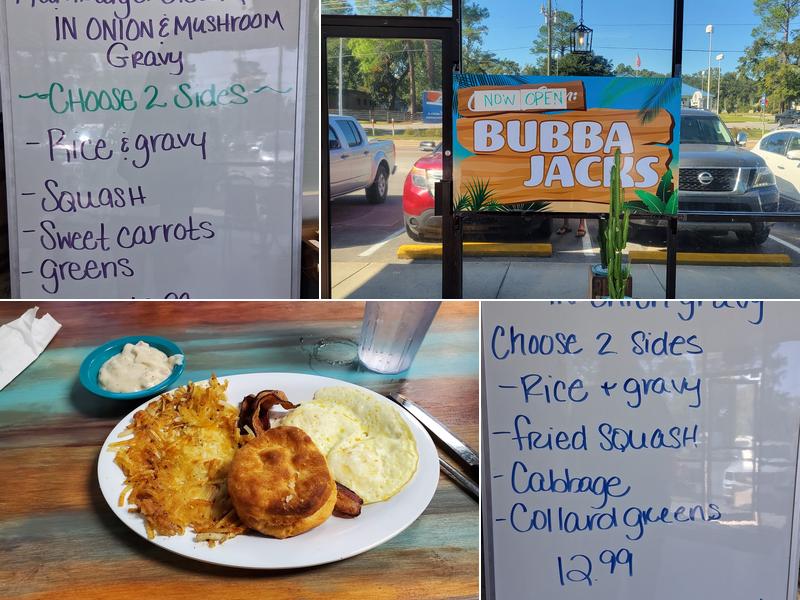 IN ONION & MUSHROOM
Gravy
~CHOOSE 2 SIDES~
- Rice & gravy
- Squash
- Sweet carrots
- greens
NOW OPEN
BUBBA
JACKS
in onion gravy
Choose 2 Sides
- Rice + gravy
- fried SQUASH
- Cabbage
- Collard greens
12.99